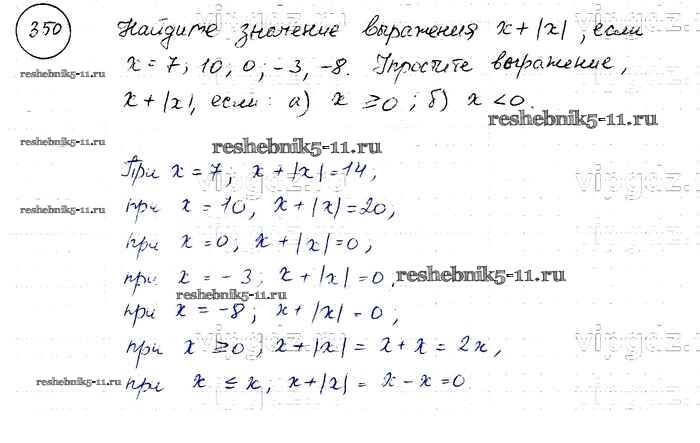 350 Найдите значение выражения x + |x|, если
x = 7; 10; 0; -3; -8. Упростите выражение,
reshebnik5-11.ru
x + |x|, если: а) x ≥ 0; б) x < 0.
reshebnik5-11.ru
reshebnik5-11.ru
При x = 7; x + |x| = 14;
vipgdz.ru
при x = 10, x + |x| = 20,
reshebnik5-11.ru
при x = 0; x + |x| = 0,
при x = -3; x + |x| = 0,
reshebnik5-11.ru
reshebnik5-11.ru
при x = -8; x + |x| = 0;
при x ≥ 0; x + |x| = x + x = 2x,
vipgdz.ru
при x ≤ x; x + |x| = x - x = 0.
reshebnik5-11.ru